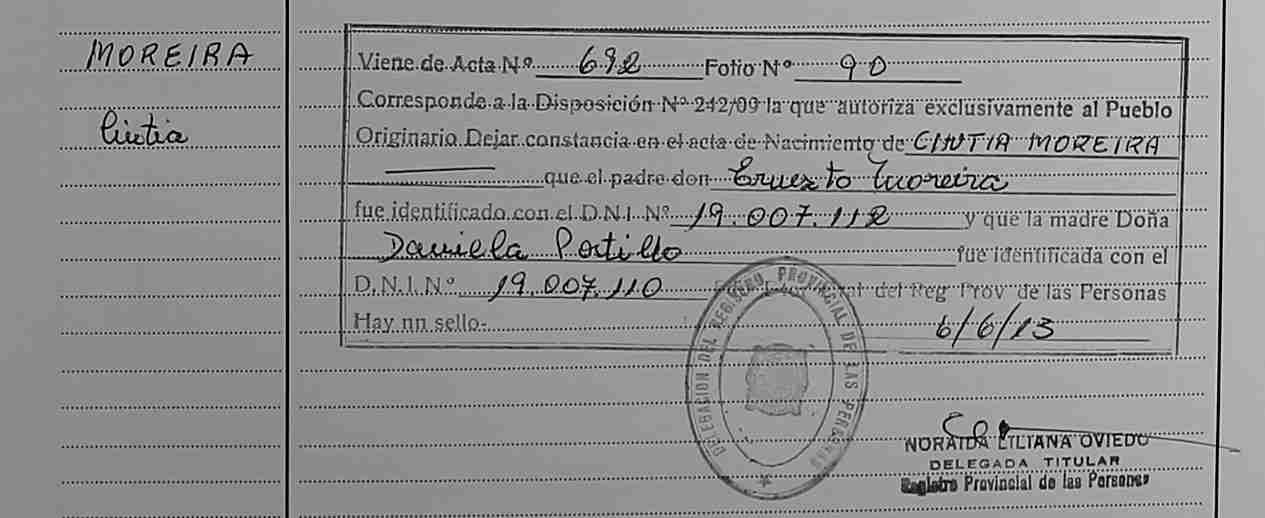 MOREIRA
Cintia
Viene de Acta Nº 692 Folio Nº 90
Corresponde a la Disposición Nº 242/09 la que autoriza exclusivamente al Pueblo
Originario Dejar constancia en el acta de Nacimiento de CINTIA MOREIRA
que el padre don Ernesto Moreira
fue identificado con el D.N.I. Nº 19.007.112 y que la madre Doña
Daniela Portillo fue identificada con el
D.N.I. Nº 19.007.110 del Reg Prov de las Personas
Hay un sello- 6/6/13
DELEGACION DEL REGISTRO PROVINCIAL DE LAS PERSONAS
NORAIDA LILIANA OVIEDO
DELEGADA TITULAR
Registro Provincial de las Personas